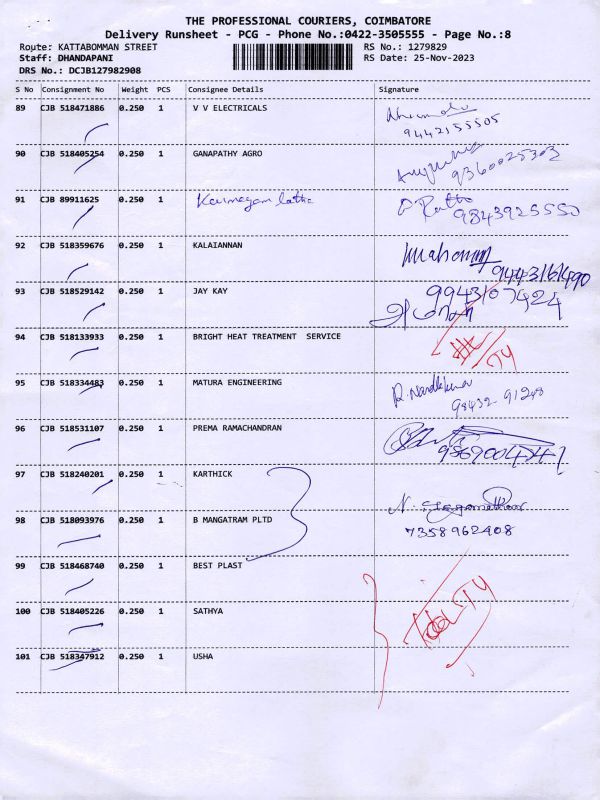 THE PROFESSIONAL COURIERS, COIMBATORE
Delivery Runsheet - PCG - Phone No.:0422-3505555 - Page No.:8
Route: KATTABOMMAN STREET RS No.: 1279829
Staff: DHANDAPANI RS Date: 25-Nov-2023
DRS No.: DCJB127982908
S No Consignment No Weight PCS Consignee Details Signature
89 CJB 518471886 0.250 1 V V ELECTRICALS
9442155505
90 CJB 518405254 0.250 1 GANAPATHY AGRO
9360025303
91 CJB 89911625 0.250 1
9843925550
92 CJB 518359676 0.250 1 KALAIANNAN
9443161490
93 CJB 518529142 0.250 1 JAY KAY 9943107424
94 CJB 518133933 0.250 1 BRIGHT HEAT TREATMENT SERVICE
95 CJB 518334483 0.250 1 MATURA ENGINEERING
98432-91248
96 CJB 518531107 0.250 1 PREMA RAMACHANDRAN
97 CJB 518240201 0.250 1 KARTHICK
98 CJB 518093976 0.250 1 B MANGATRAM PLTD
7358962408
99 CJB 518468740 0.250 1 BEST PLAST
100 CJB 518405226 0.250 1 SATHYA
101 CJB 518347912 0.250 1 USHA